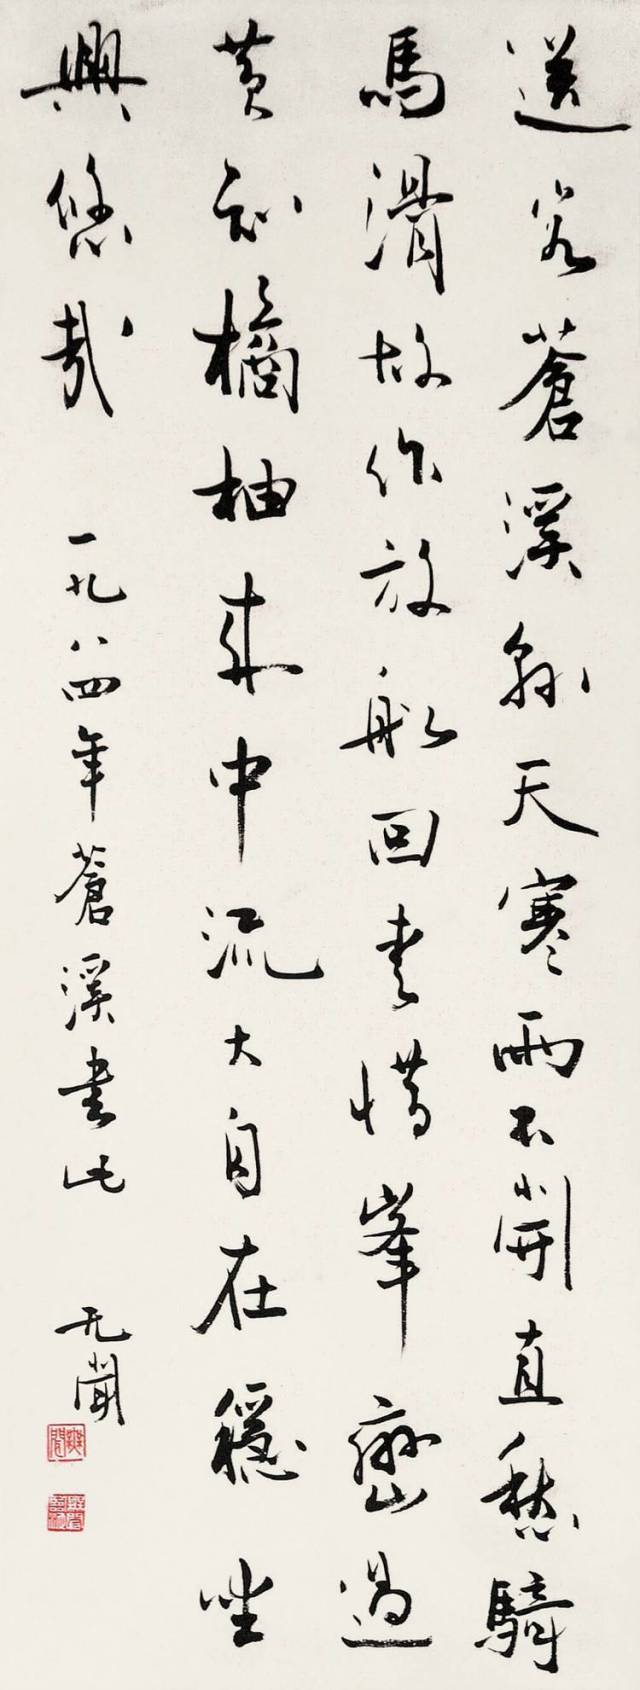 送客蒼溪縣天寒雨不開直愁騎
馬滑故作放船回青惜峯巒過
黃知橘柚來中流大自在穩坐
興悠哉
一九八四年蒼溪書此
无聞